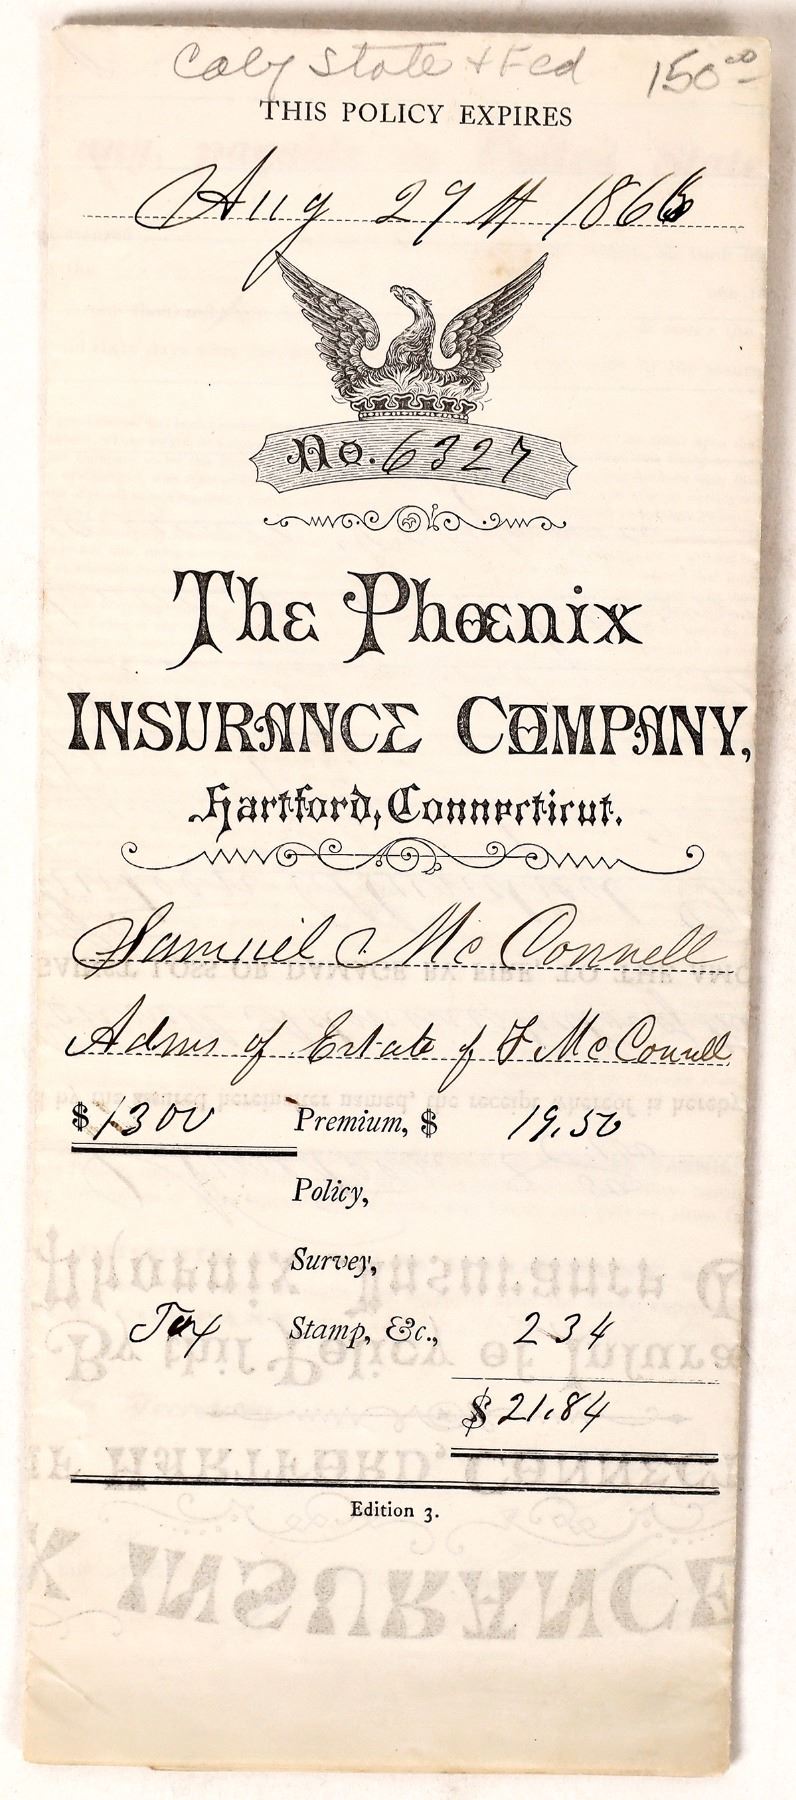 Calif State + Fed 150.00
THIS POLICY EXPIRES
Aug 29th 1866
No. 6327
The Phœnix
INSURANCE COMPANY,
Hartford, Connecticut.
Samuel McConnell
Admr of Estate of F McConnell
$1300 Premium, $ 19.50
Policy,
Survey,
Tax Stamp, &c., 2 34
$21.84
Edition 3.